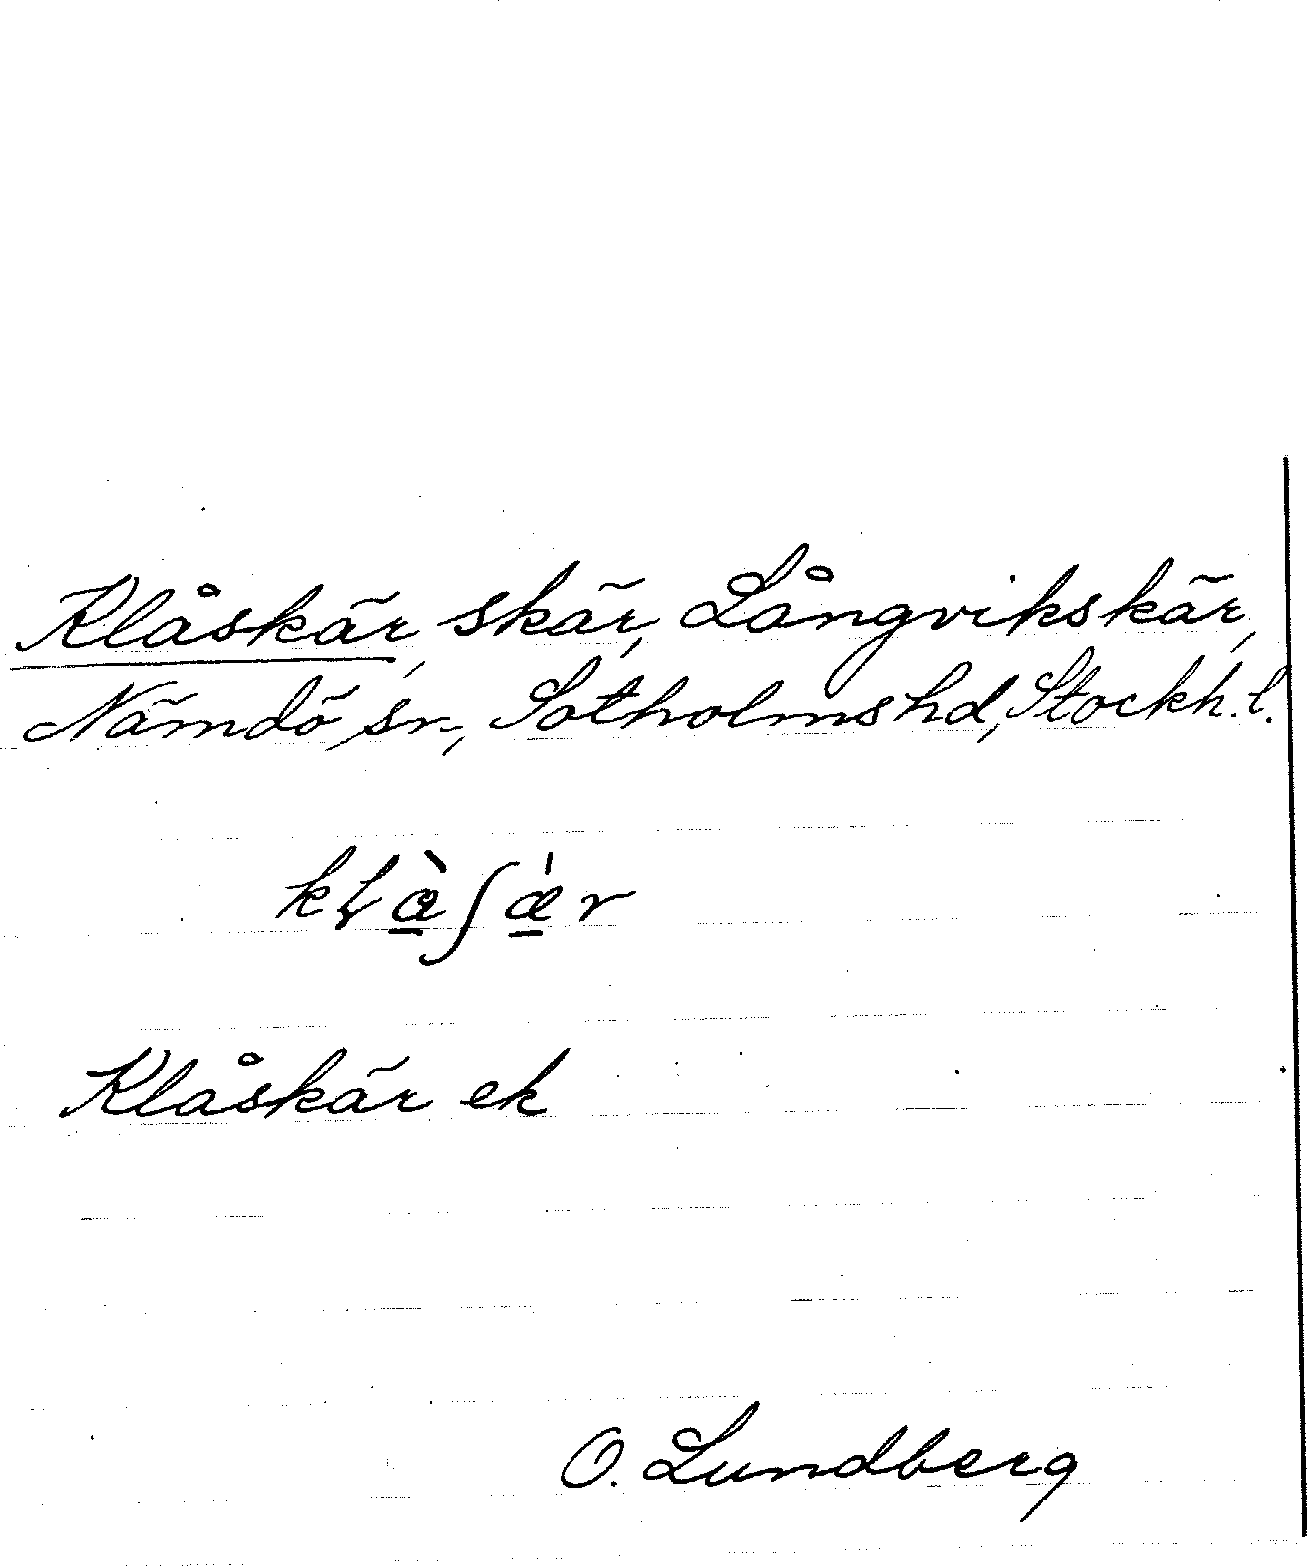 Klåskär, skär, Långvikskär,
Nämdö sn, Sotholms hd, Stockh. l.
Klåskär ek
O. Lundberg